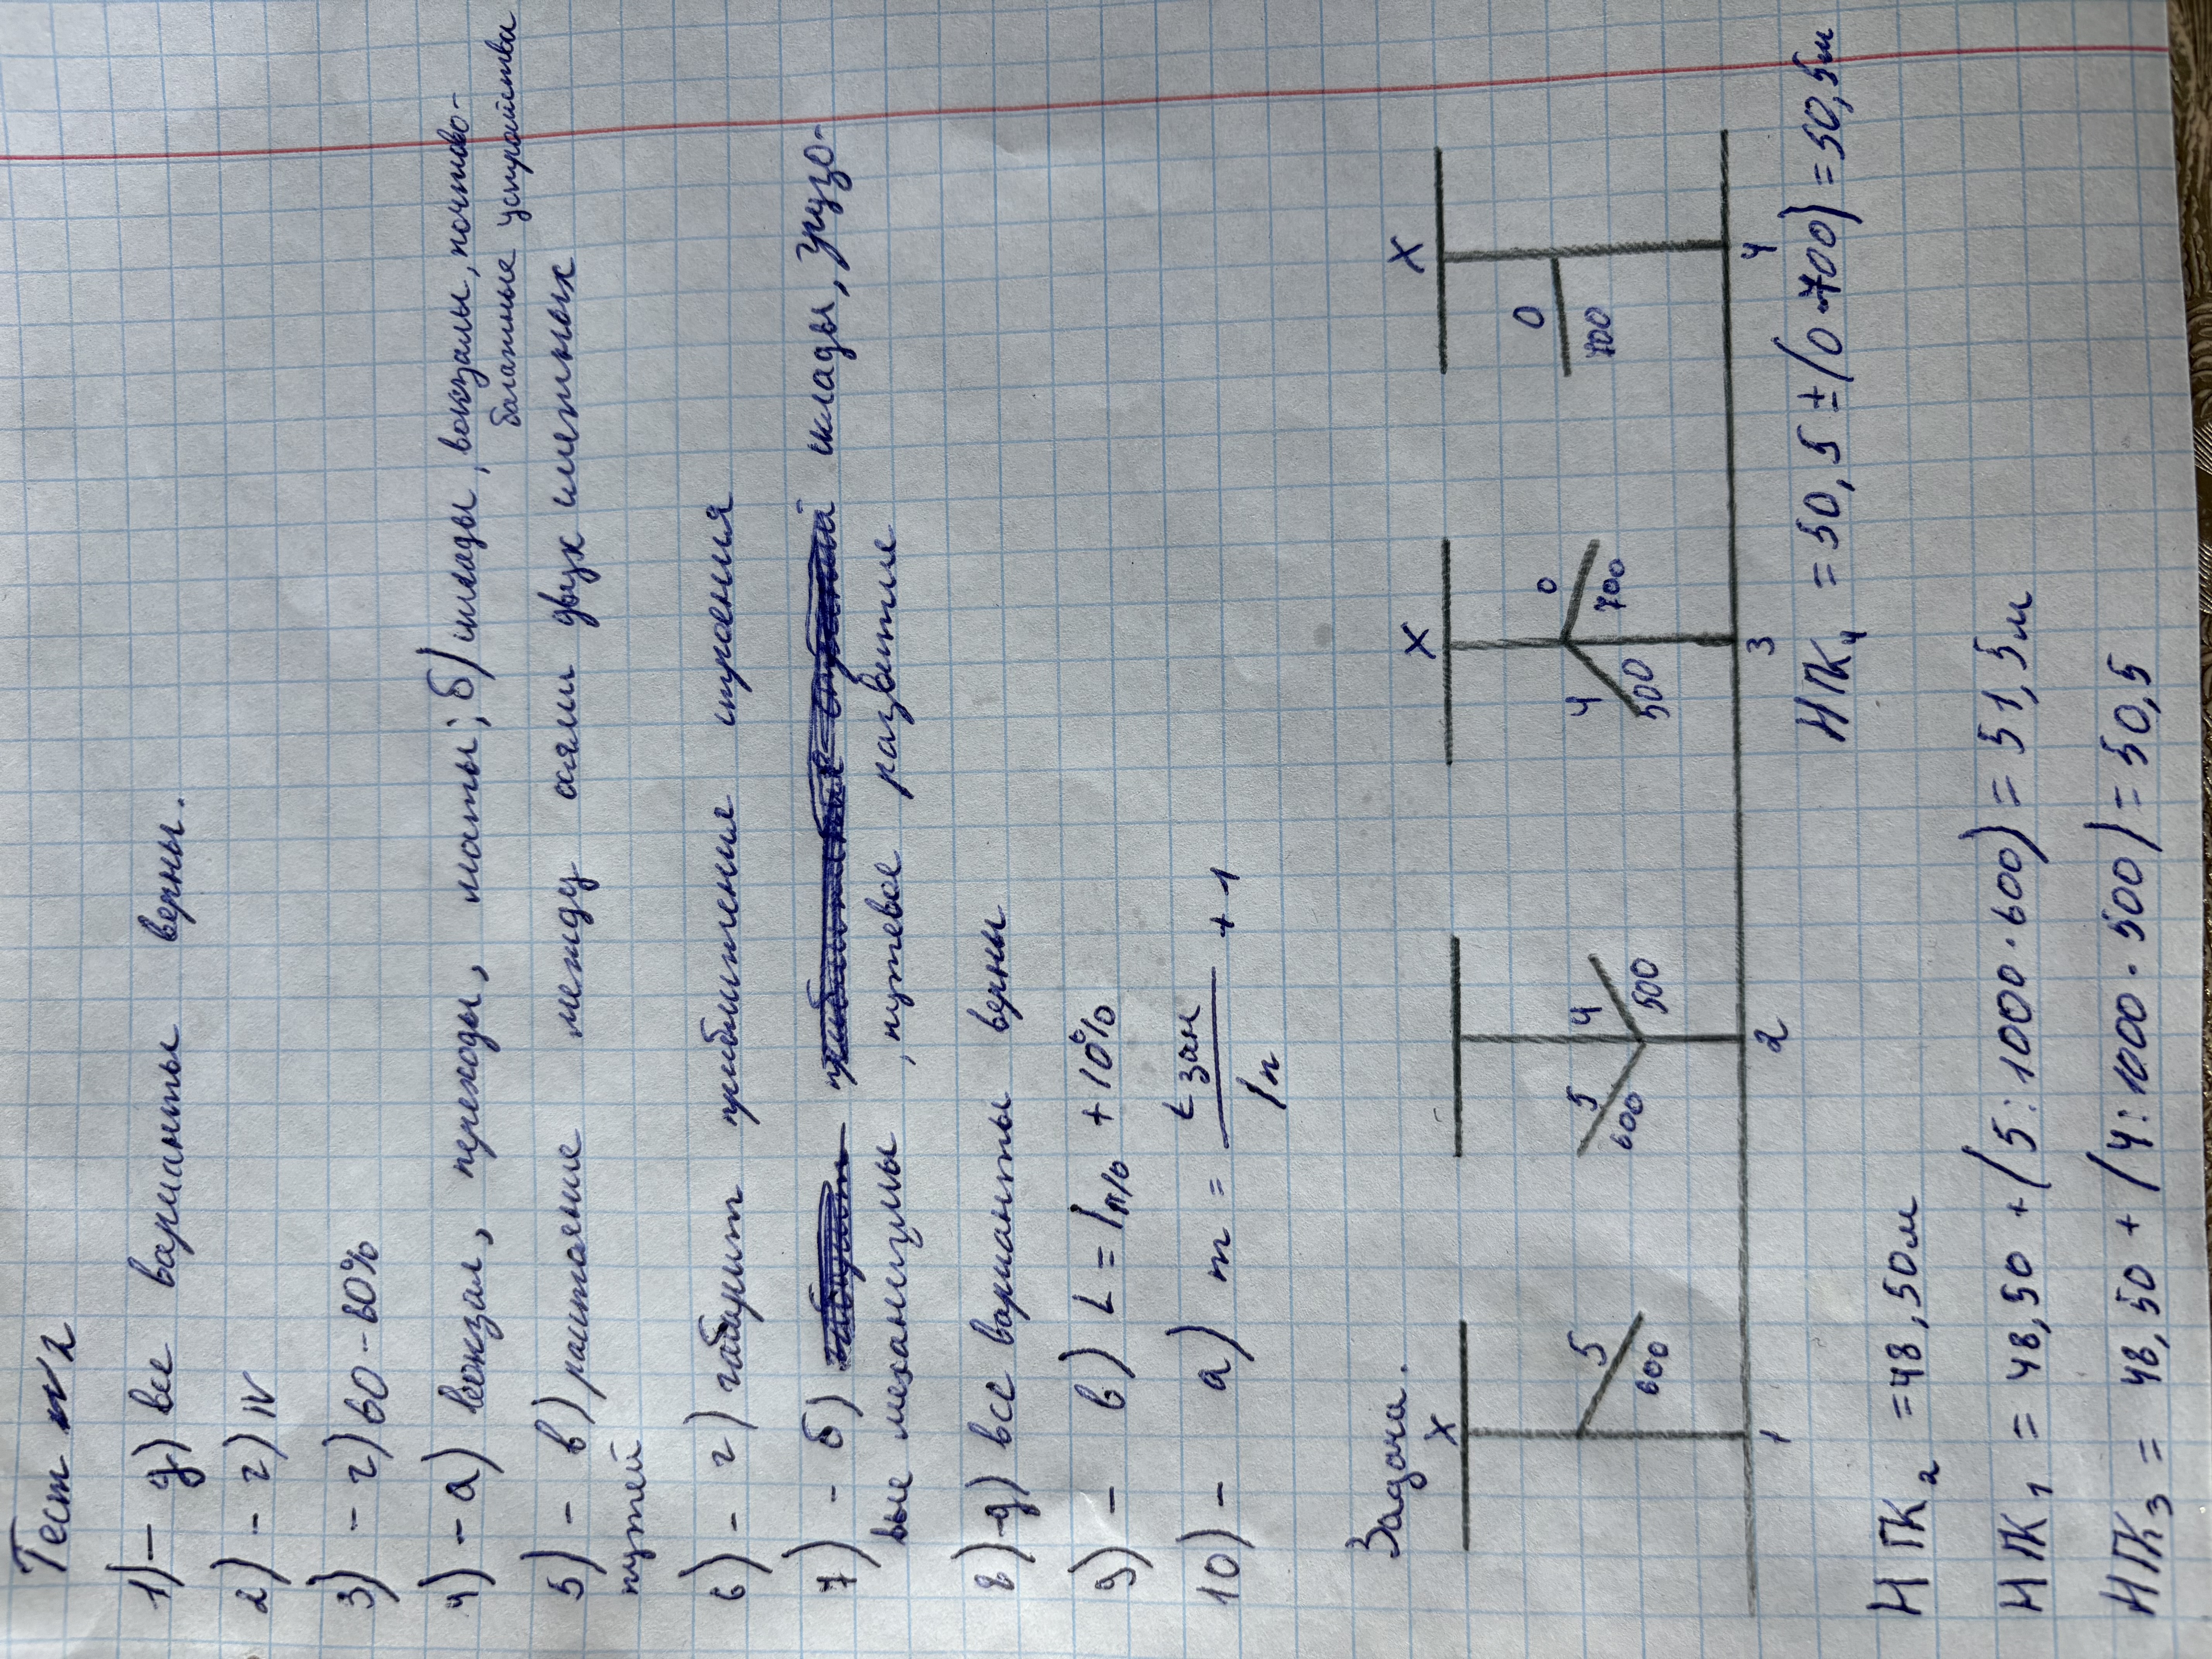 Тест №2
1) – д) все варианты верны.
2) – г) IV
3) – г) 60–80%
4) – а) вокзал, переходы, мосты; б) склады, вокзалы, почтово-
багажные устройства
5) – в) расстояние между осями двух смежных
путей
6) – г) габарит приближения строения
7) – б) склады, грузо-
вые механизмы, путевое развитие
8) – д) все варианты верны
9) – в) L = lп/о + 10%
10) – а) m = Lзан / lп + 1
Задача.
X X X
5 600
5 600 4 500
4 500 0 700
0 700
1 2 3 4
НПК4 = 50,5 ± (0·700) = 50,5м
НПК2 = 48,50м
НПК1 = 48,50 + (5:1000·600) = 51,5м
НПК3 = 48,50 + (4:1000·500) = 50,5